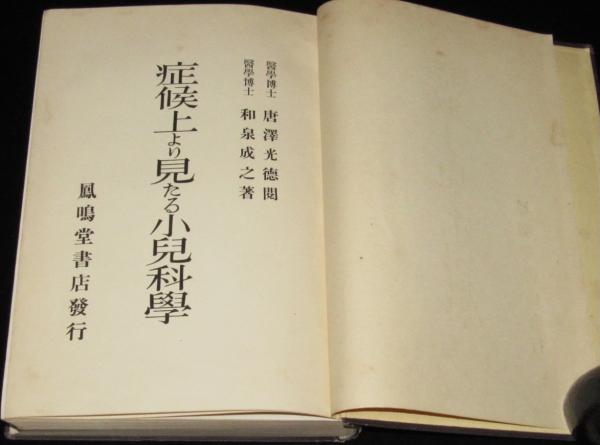 醫學博士 唐澤光德閱
醫學博士 和泉成之著
症候上より見たる小兒科學
鳳鳴堂書店發行